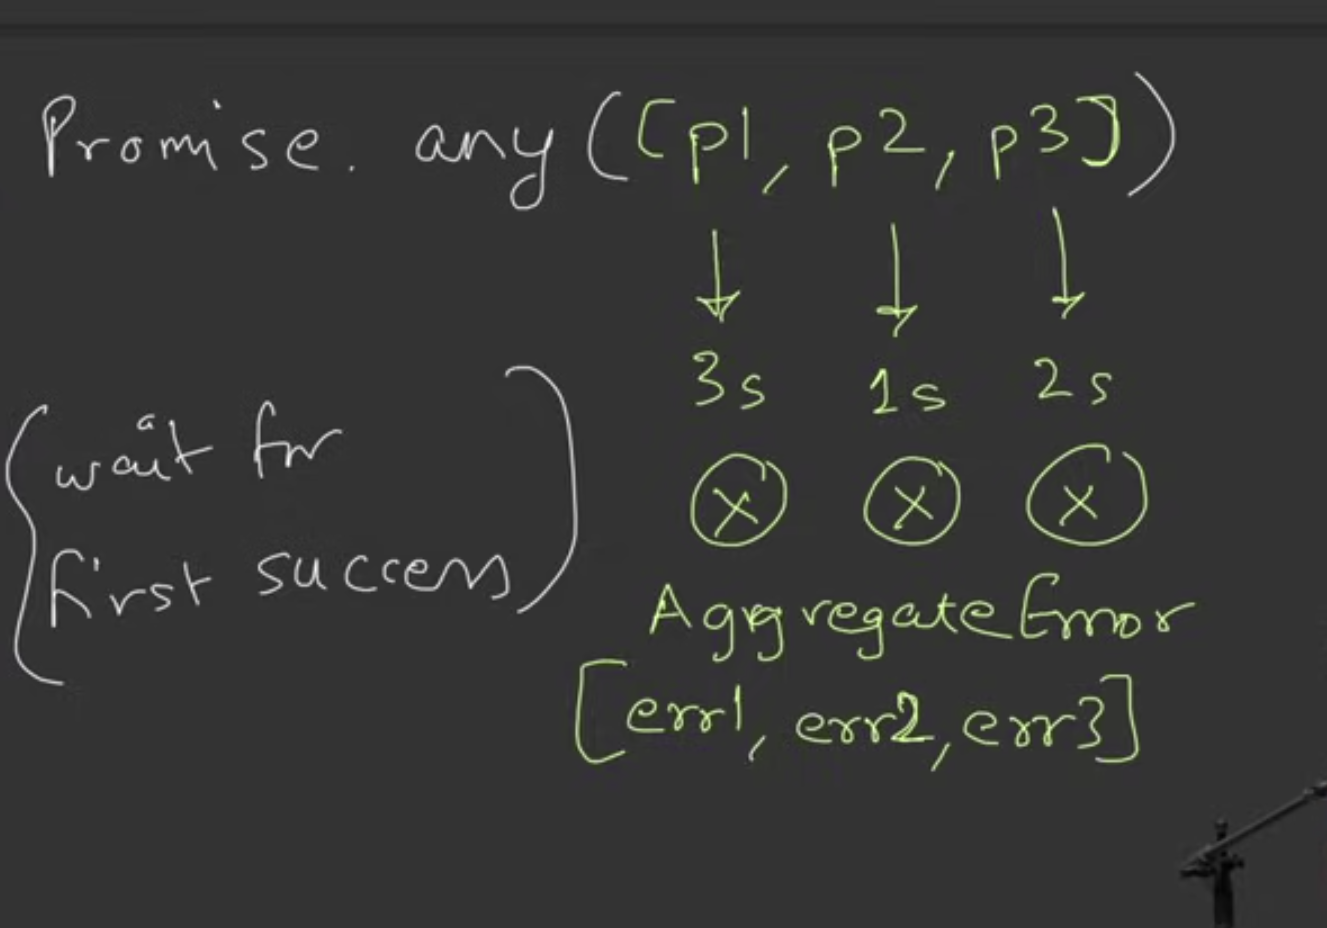 Promise. any([p1, p2, p3])
3s 1s 2s
wait for
first success
AggregateError
[err1, err2, err3]